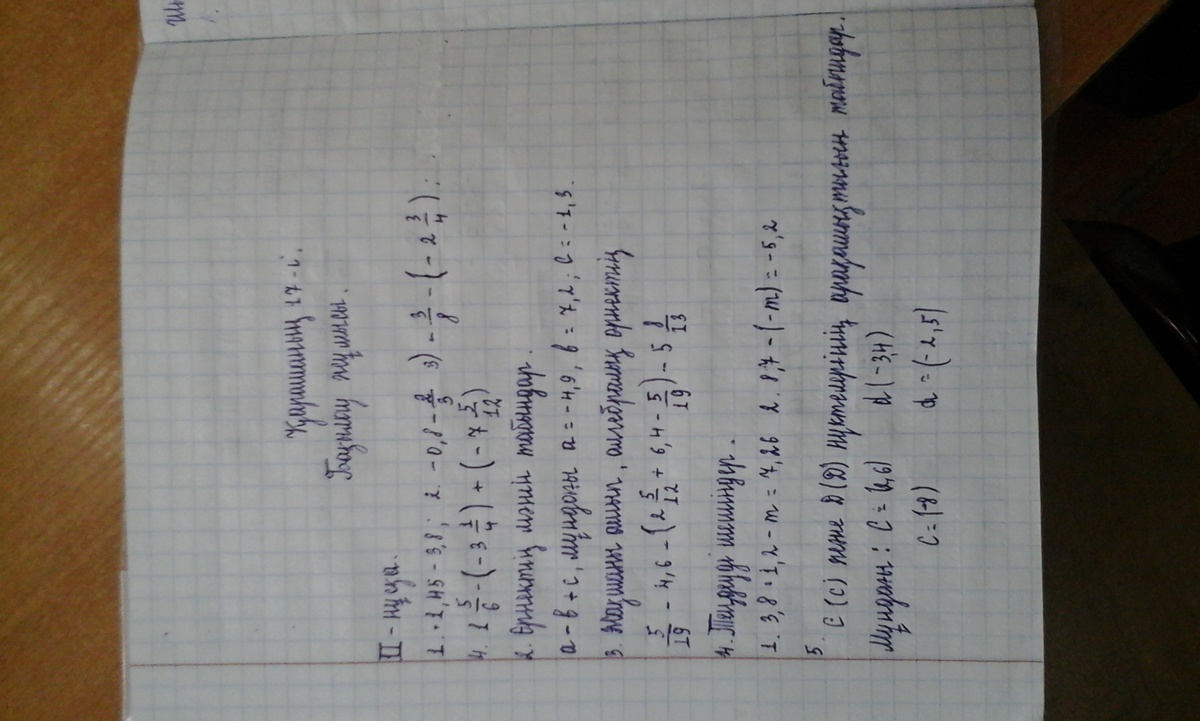 Қарашаның 17-і.
Бақылау жұмысы.
II - нұсқа.
1. · 1,45 - 3,8; 2. - 0,8 - 2/3 3) - 3/8 - (- 2 3/4);
4. 1 5/6 - (- 3 1/4) + (- 7 5/12)
2. Өрнектің мәнін табыңдар.
a - b + c, мұндағы a = - 4,9, b = 7,2; c = - 1,3.
3. Жақшаны ашып, алгебралық өрнектің
5/19 - 4,6 - (2 5/12 + 6,4 - 5/19) - 5 8/13
4. Теңдеуді шешіңдер.
1. 3,8 · 1,2 - m = 7,26 2. 8,7 - (-m) = - 5,2
5. C (c) және D (D) нүктелерінің арақашықтығын табыңдар.
Мұндағы: C = (2,6) d (- 3,4)
C = (-8) d = (- 2,5)